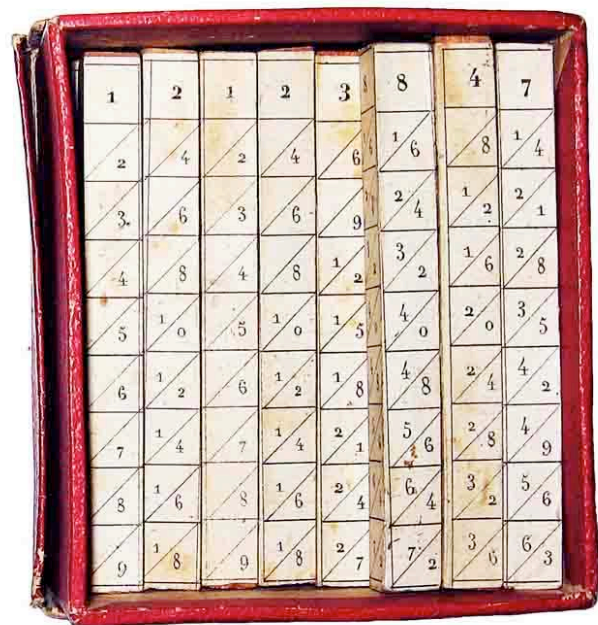 1 2 1 2 3 8 4 7
2 4 2 4 6 1 6 8 1 4
3 6 3 6 9 2 4 1 2 2 1
4 8 4 8 1 2 3 2 1 6 2 8
5 1 0 5 1 0 1 5 4 0 2 0 3 5
6 1 2 6 1 2 1 8 4 8 2 4 4 2
7 1 4 7 1 4 2 1 5 6 2 8 4 9
8 1 6 8 1 6 2 4 6 4 3 2 5 6
9 1 8 9 1 8 2 7 7 2 3 6 6 3